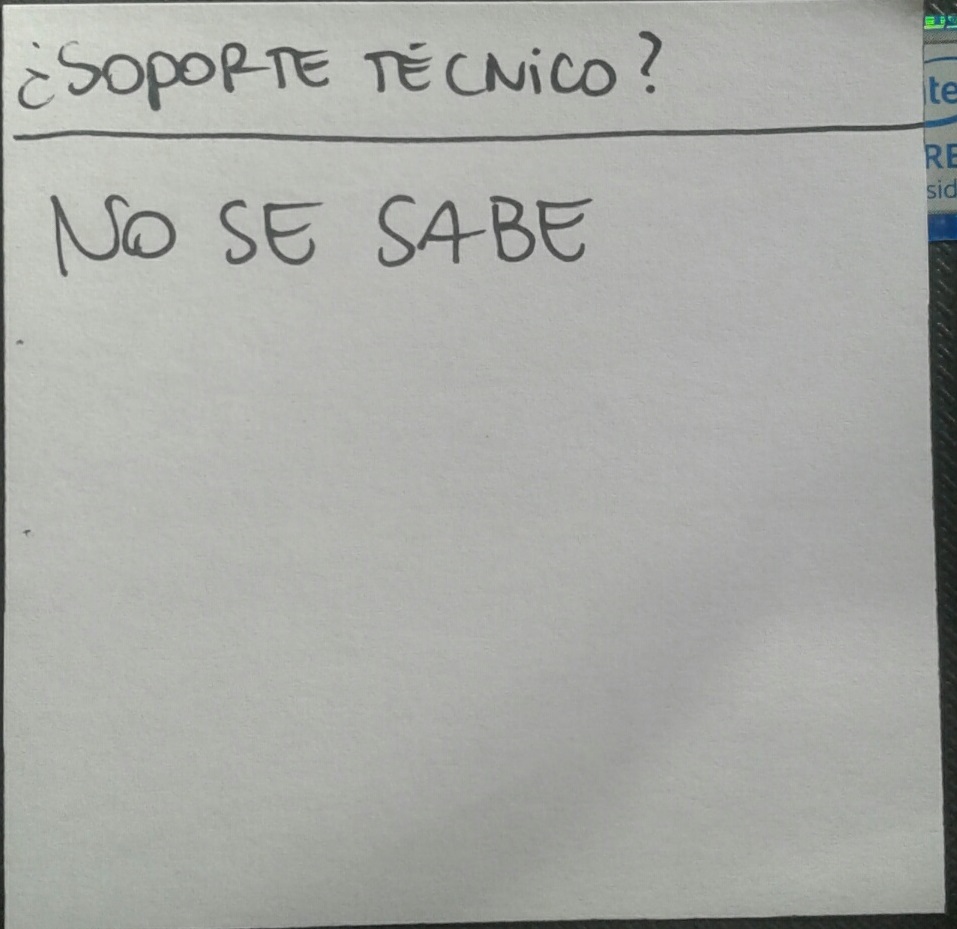 ¿SOPORTE TÉCNICO?
NO SE SABE
te
RE
sid